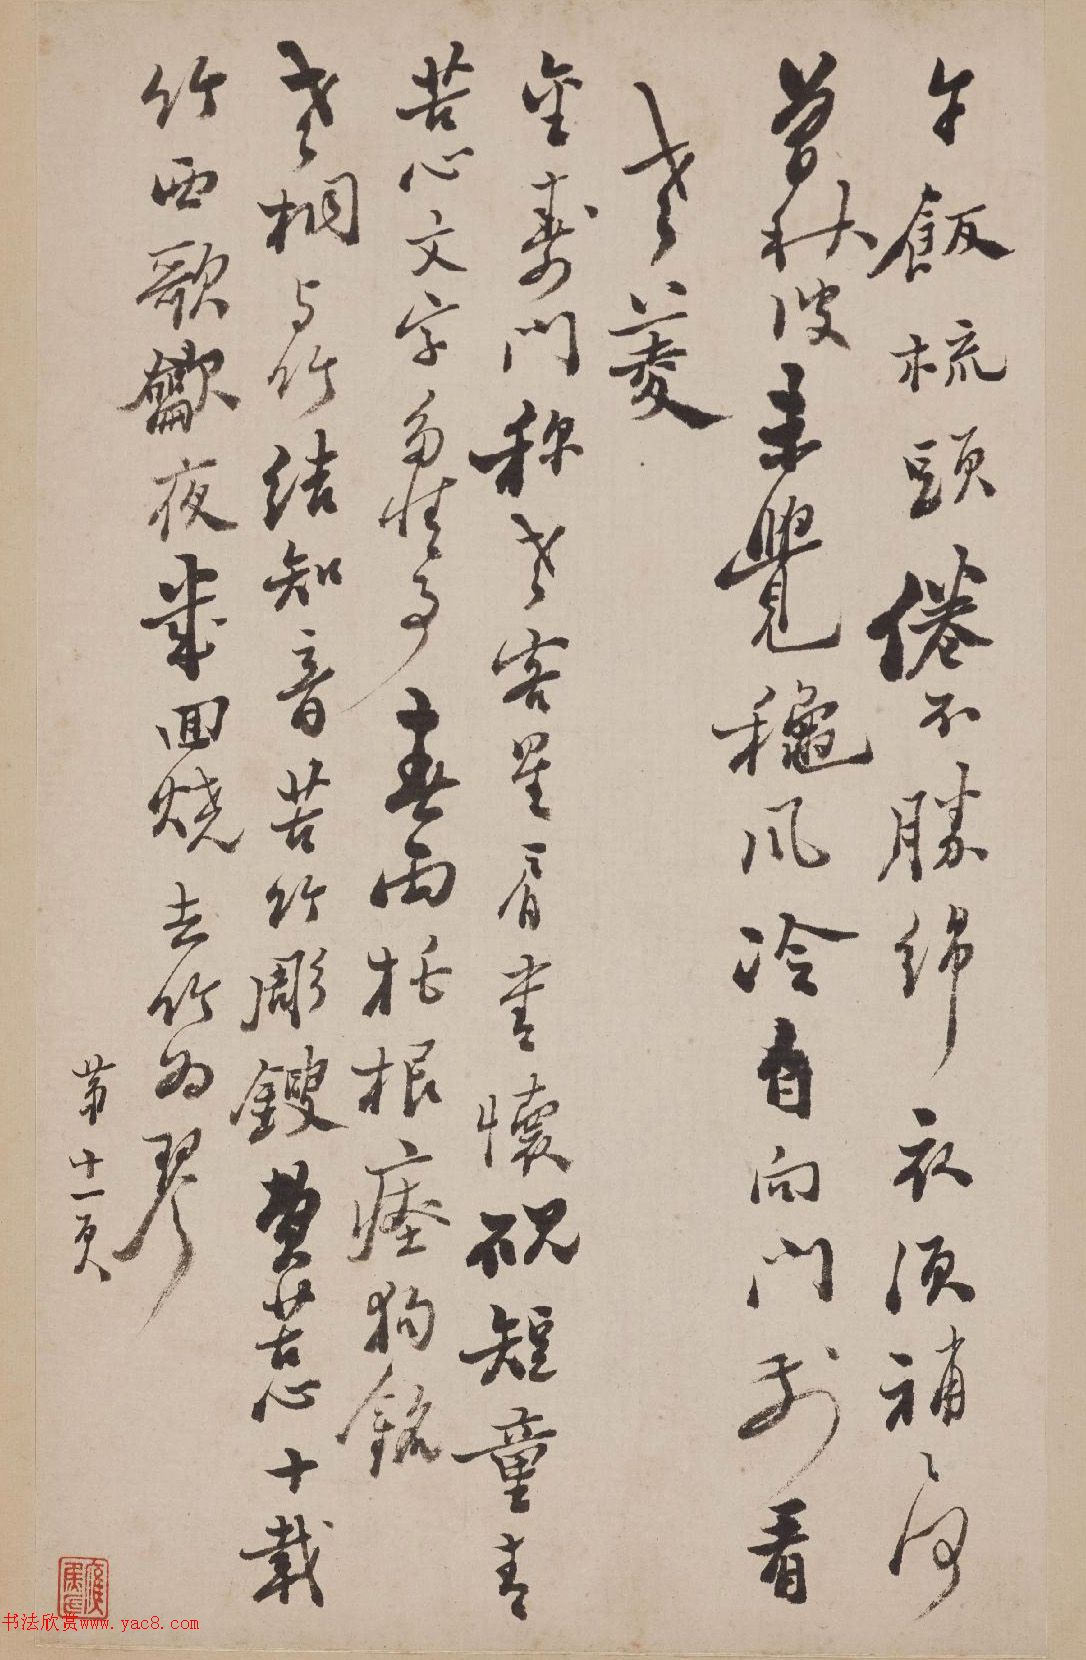 午飯梳頭倦不勝綿衣須補〻何
曾秋未覺龝風冷自向門前看
老菱
金壽門稱老客星肩書懷硯短童青
苦心文字多情事春雨托根瘞狗銘
老桐与竹結知音苦竹彫鎪費苦心十載
竹西歌龡夜幾回燒去竹為琴
第十一頁
书法欣赏www.yac8.com